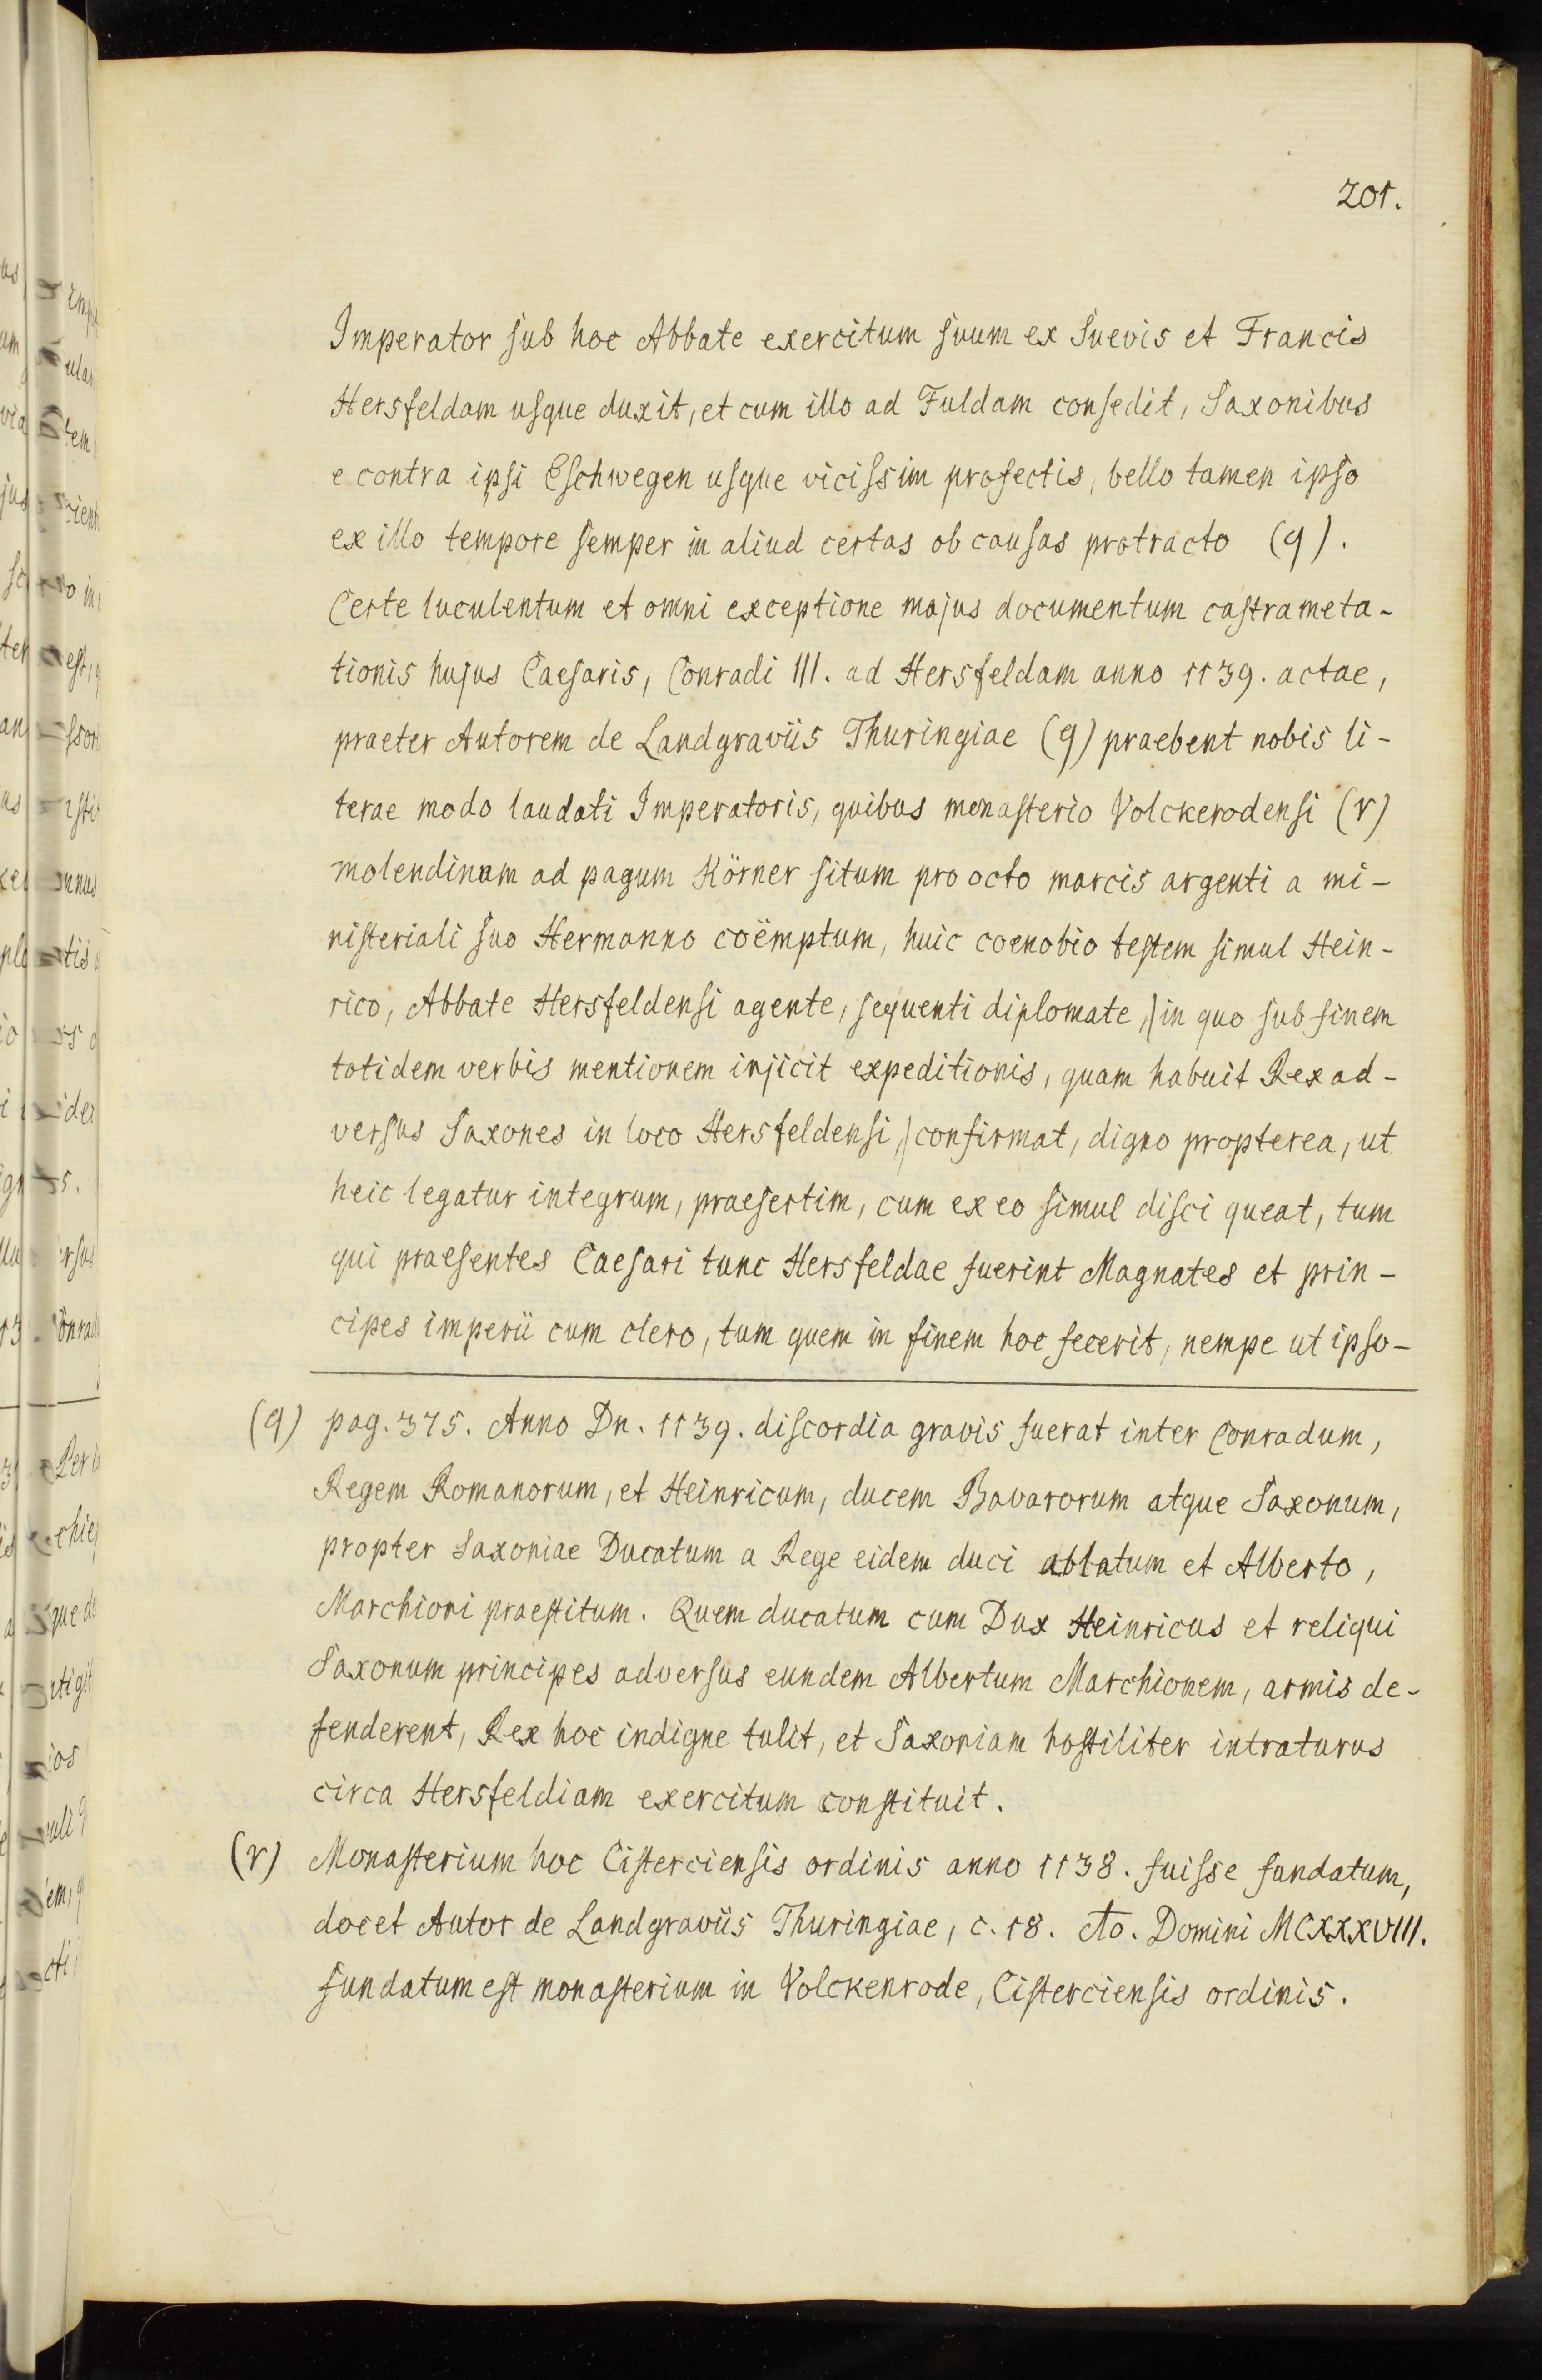 201.
Imperator sub hoc Abbate exercitum suum ex Suevis et Francis
Hersfeldam usque duxit, et cum illo ad Fuldam consedit, Saxonibus
e contra ipsi Eschwegen usque vicissim profectis, bello tamen ipso
ex illo tempore semper in aliud certas ob causas protracto (q).
Certe luculentum et omni exceptione majus documentum castrameta-
tionis hujus Caesaris, Conradi III. ad Hersfeldam anno 1139. actae,
praeter Autorem de Landgraviis Thuringiae (q) praebent nobis li-
terae modo laudati Imperatoris, quibus monasterio Volckerodensi (r)
molendinum ad pagum Körner situm pro octo marcis argenti a mi-
nisteriali suo Hermanno coëmptum, huic coenobio testem simul Hein-
rico, Abbate Hersfeldensi agente, sequenti diplomate,) in quo sub finem
totidem verbis mentionem injicit expeditionis, quam habuit Rex ad-
versus Saxones in loco Hersfeldensi,) confirmat, digno propterea, ut
heic legatur integrum, praesertim, cum ex eo simul disci queat, tum
qui praesentes Caesari tunc Hersfeldae fuerint Magnates et prin-
cipes imperii cum clero, tum quem in finem hoc fecerit, nempe ut ipso-
(q) pag. 375. Anno Dn. 1139. discordia gravis fuerat inter Conradum,
Regem Romanorum, et Heinricum, ducem Bavarorum atque Saxonum,
propter Saxoniae Ducatum a Rege eidem duci ablatum et Alberto,
Marchioni praestitum. Quem ducatum cum Dux Heinricus et reliqui
Saxonum principes adversus eundem Albertum Marchionem, armis de-
fenderent, Rex hoc indigne tulit, et Saxoniam hostiliter intraturus
circa Hersfeldiam exercitum constituit.
(r) Monasterium hoc Cisterciensis ordinis anno 1138. fuisse fundatum,
docet Autor de Landgraviis Thuringiae, c. 18. Ao. Domini MCXXXVIII.
fundatum est monasterium in Volckenrode, Cisterciensis ordinis.